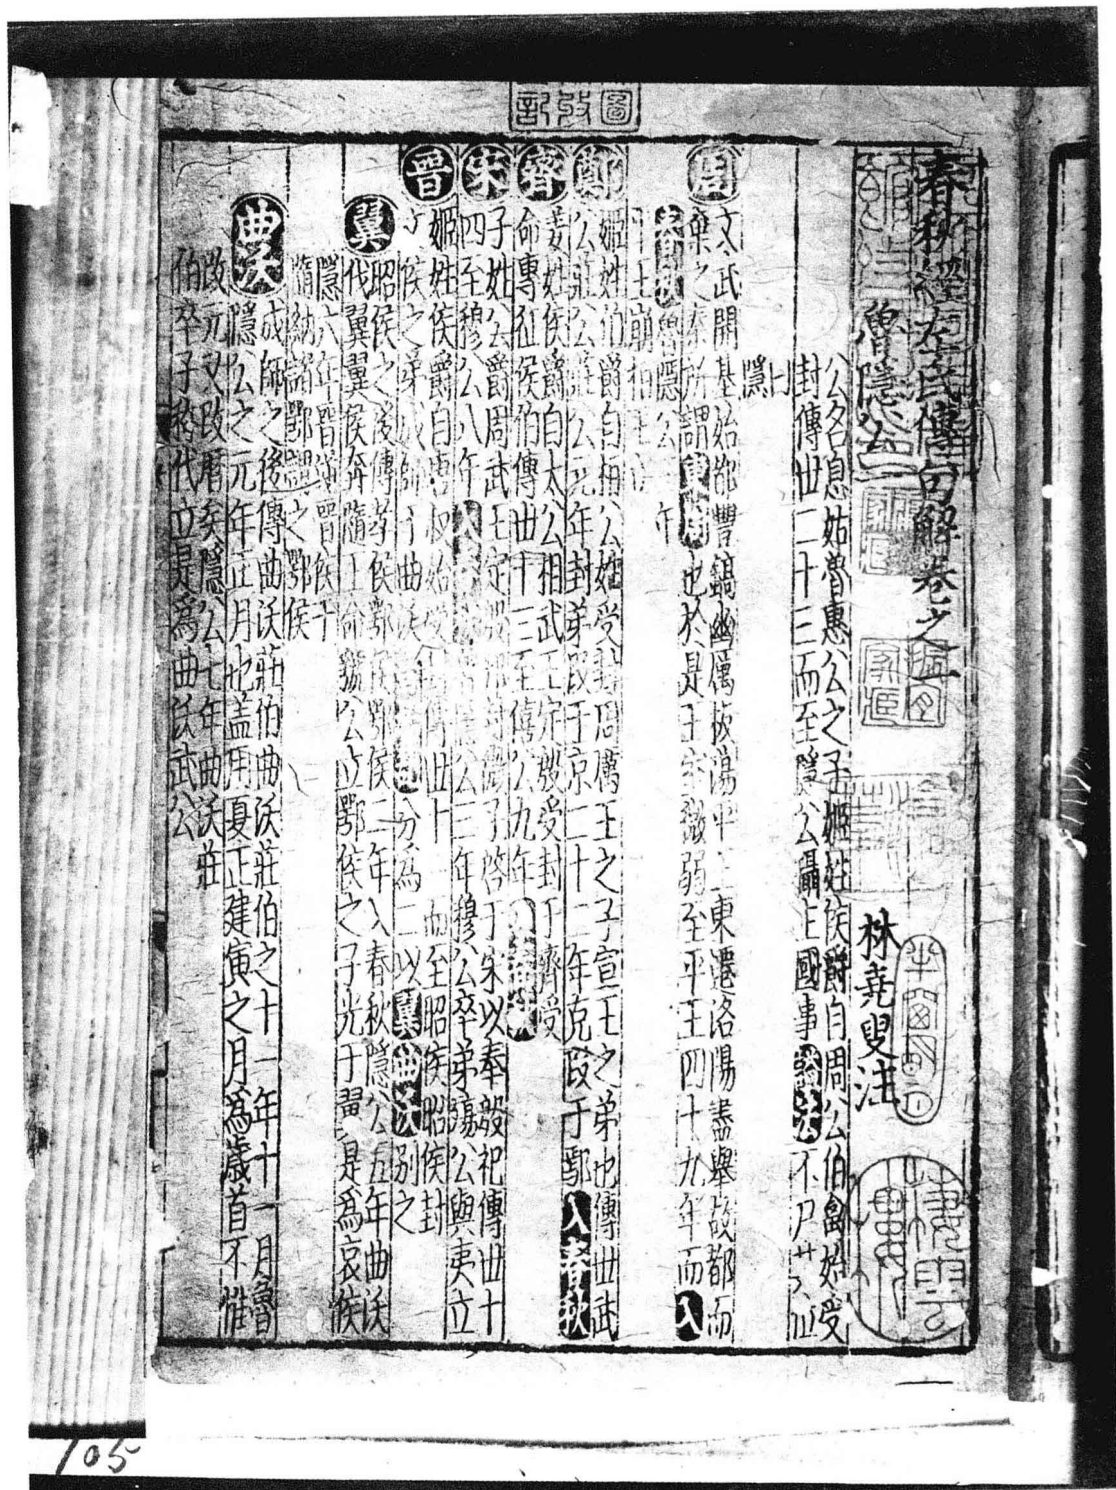 春秋經左氏傳句解卷之一
林堯叟注
魯隱公一
公名息姑魯惠公之子姬姓侯爵自周公伯禽始受
封傳世二十三而至隱公攝主國事謚法不尸其位
曰隱
周
文武開基始都豐鎬幽厲板蕩平王東遷洛陽盡舉故都而
棄之秦所謂東周也於是王室微弱至平王四十九年而入
春秋魯隱公 年
平王崩桓王立
鄭
姬姓伯爵自桓公始受封周厲王之子宣王之弟也傳世武
公莊公莊公元年封弟段于京二十二年克段于鄢入春秋
齊
姜姓侯爵自太公相武王定殷受封于齊受
命專征侯伯傳世十三至僖公九年入春秋
宋
子姓公爵周武王定殷 封微子啓于宋以奉殷祀傳世十
四至穆公八年入春秋 隱公三年穆公卒弟殤公與夷立
晉
姬姓侯爵自唐叔始受 傳世十 而至昭侯昭侯封
文侯之弟成師于曲沃 分為二以翼曲沃別之
翼
昭侯之後傳孝侯鄂侯鄂侯二年入春秋隱公五年曲沃
代翼翼侯奔隨王命虢公立鄂侯之子光于翼是為哀侯
隱六年晉 晉侯于
隨納諸鄂謂之鄂侯
曲沃
成師之後傳曲沃莊伯曲沃莊伯之十一年十一月魯
隱公之元年正月也蓋用夏正建寅之月為歲首不惟
改元又改曆矣隱公七年曲沃莊
伯卒子稱代立是為曲沃武公
105